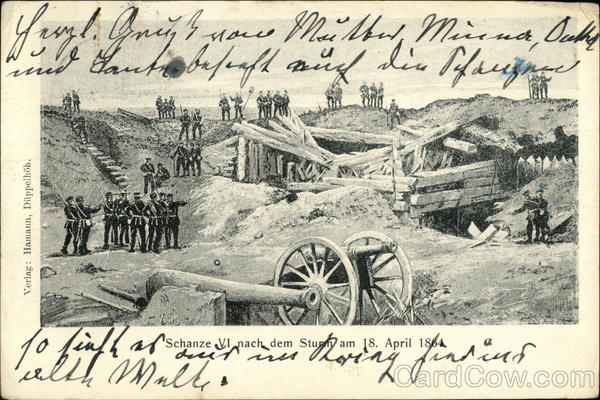 Herzl. Gruß von Mutter, Minna, Onkel
und Tante besieht auch die Schanzen
Verlag: Hamann, Düppelhöh.
Schanze VI nach dem Sturm am 18. April 1864.
so sieht es aus im Krieg
alte
CardCow.com